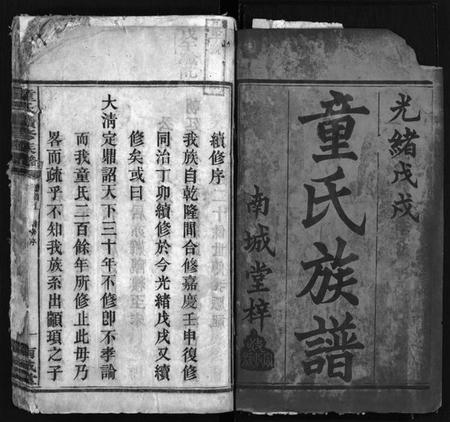 光緒戊戌
童氏族譜
南城堂梓
續修序
我族自乾隆間合修嘉慶壬申復修
同治丁卯續修於今光緒戊戌又續
修矣或曰
大淸定鼎詔天下三十年不修卽不孝論
而我童氏二百餘年所修止此毋乃
畧而疏乎不知我族系出顓頊之子